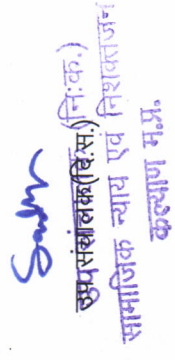 उपसंचालक(वि.स.) (नि:क.)
सामाजिक न्याय एवं निशक्तजन
कल्याण म.प्र.